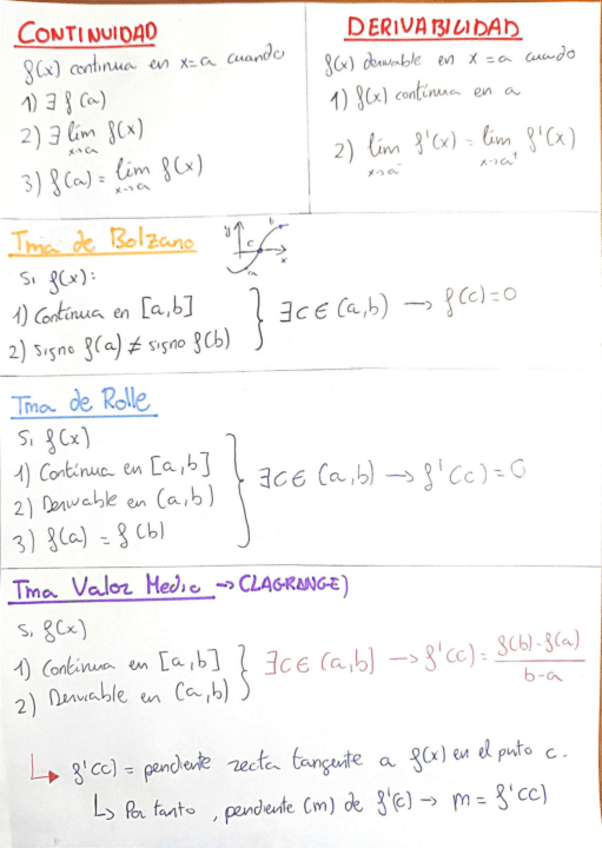 CONTINUIDAD
f(x) continua en x=a cuando
1) ∃ f(a)
2) ∃ lim f(x)
x→a
3) f(a) = lim f(x)
x→a
DERIVABILIDAD
f(x) derivable en x=a cuando
1) f(x) continua en a
2) lim f'(x) = lim f'(x)
x→a⁻ x→a⁺
Tma de Bolzano
y c b a x
Si f(x):
1) Continua en [a,b]
2) signo f(a) ≠ signo f(b)
∃c∈(a,b) → f(c)=0
Tma de Rolle
Si f(x)
1) Continua en [a,b]
2) Derivable en (a,b)
3) f(a) = f(b)
∃c∈(a,b) → f'(c)=0
Tma Valor Medio → (LAGRANGE)
Si f(x)
1) Continua en [a,b]
2) Derivable en (a,b)
∃c∈(a,b) → f'(c) = f(b)-f(a)
b-a
↳ f'(c) = pendiente recta tangente a f(x) en el pnto c.
↳ Por tanto, pendiente (m) de f'(c) → m = f'(c)